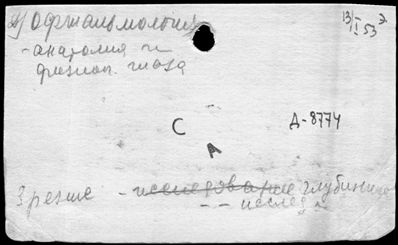 2) Офтальмология
13/I 53 Э
- анатомия и
физиол. глаза
С
Д-8774
А
Зрение - исследование глубинное
- - исслед.